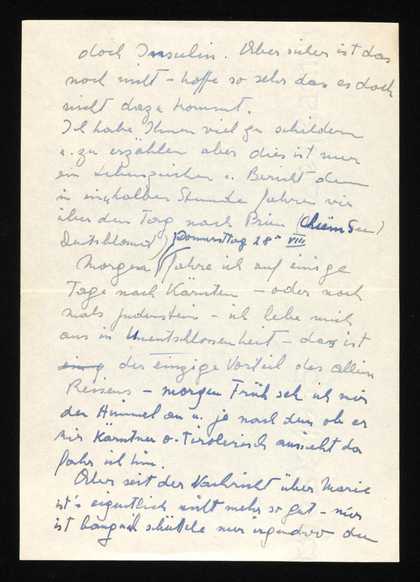 doch Insulin. Aber sicher ist das
noch nicht – hoffe so sehr das es doch
nicht dazu kommt.
Ich habe Ihnen viel zu schildern
u. zu erzählen aber dies ist nur
ein Lebenszeichen u. Bericht denn
in einer halben Stunde fahren wir
über den Tag nach Prien (Chiem See)
Deutschland) Donnerstag 28. VIII
Morgen fahre ich auf einige
Tage nach Kärnten – oder noch
mals Judenstein – ich lebe mich
aus in Unentschlossenheit – das ist
der einzige Vorteil des allein
Reisens – morgen Früh seh ich mir
den Himmel an u. je nach dem ob er
mir Kärntner o. Tirolerisch aussieht da
fahr ich hin.
Aber seit der Nachricht über Marie
ist's eigentlich nicht mehr so gut – mir
ist bang ich nur irgendwo den